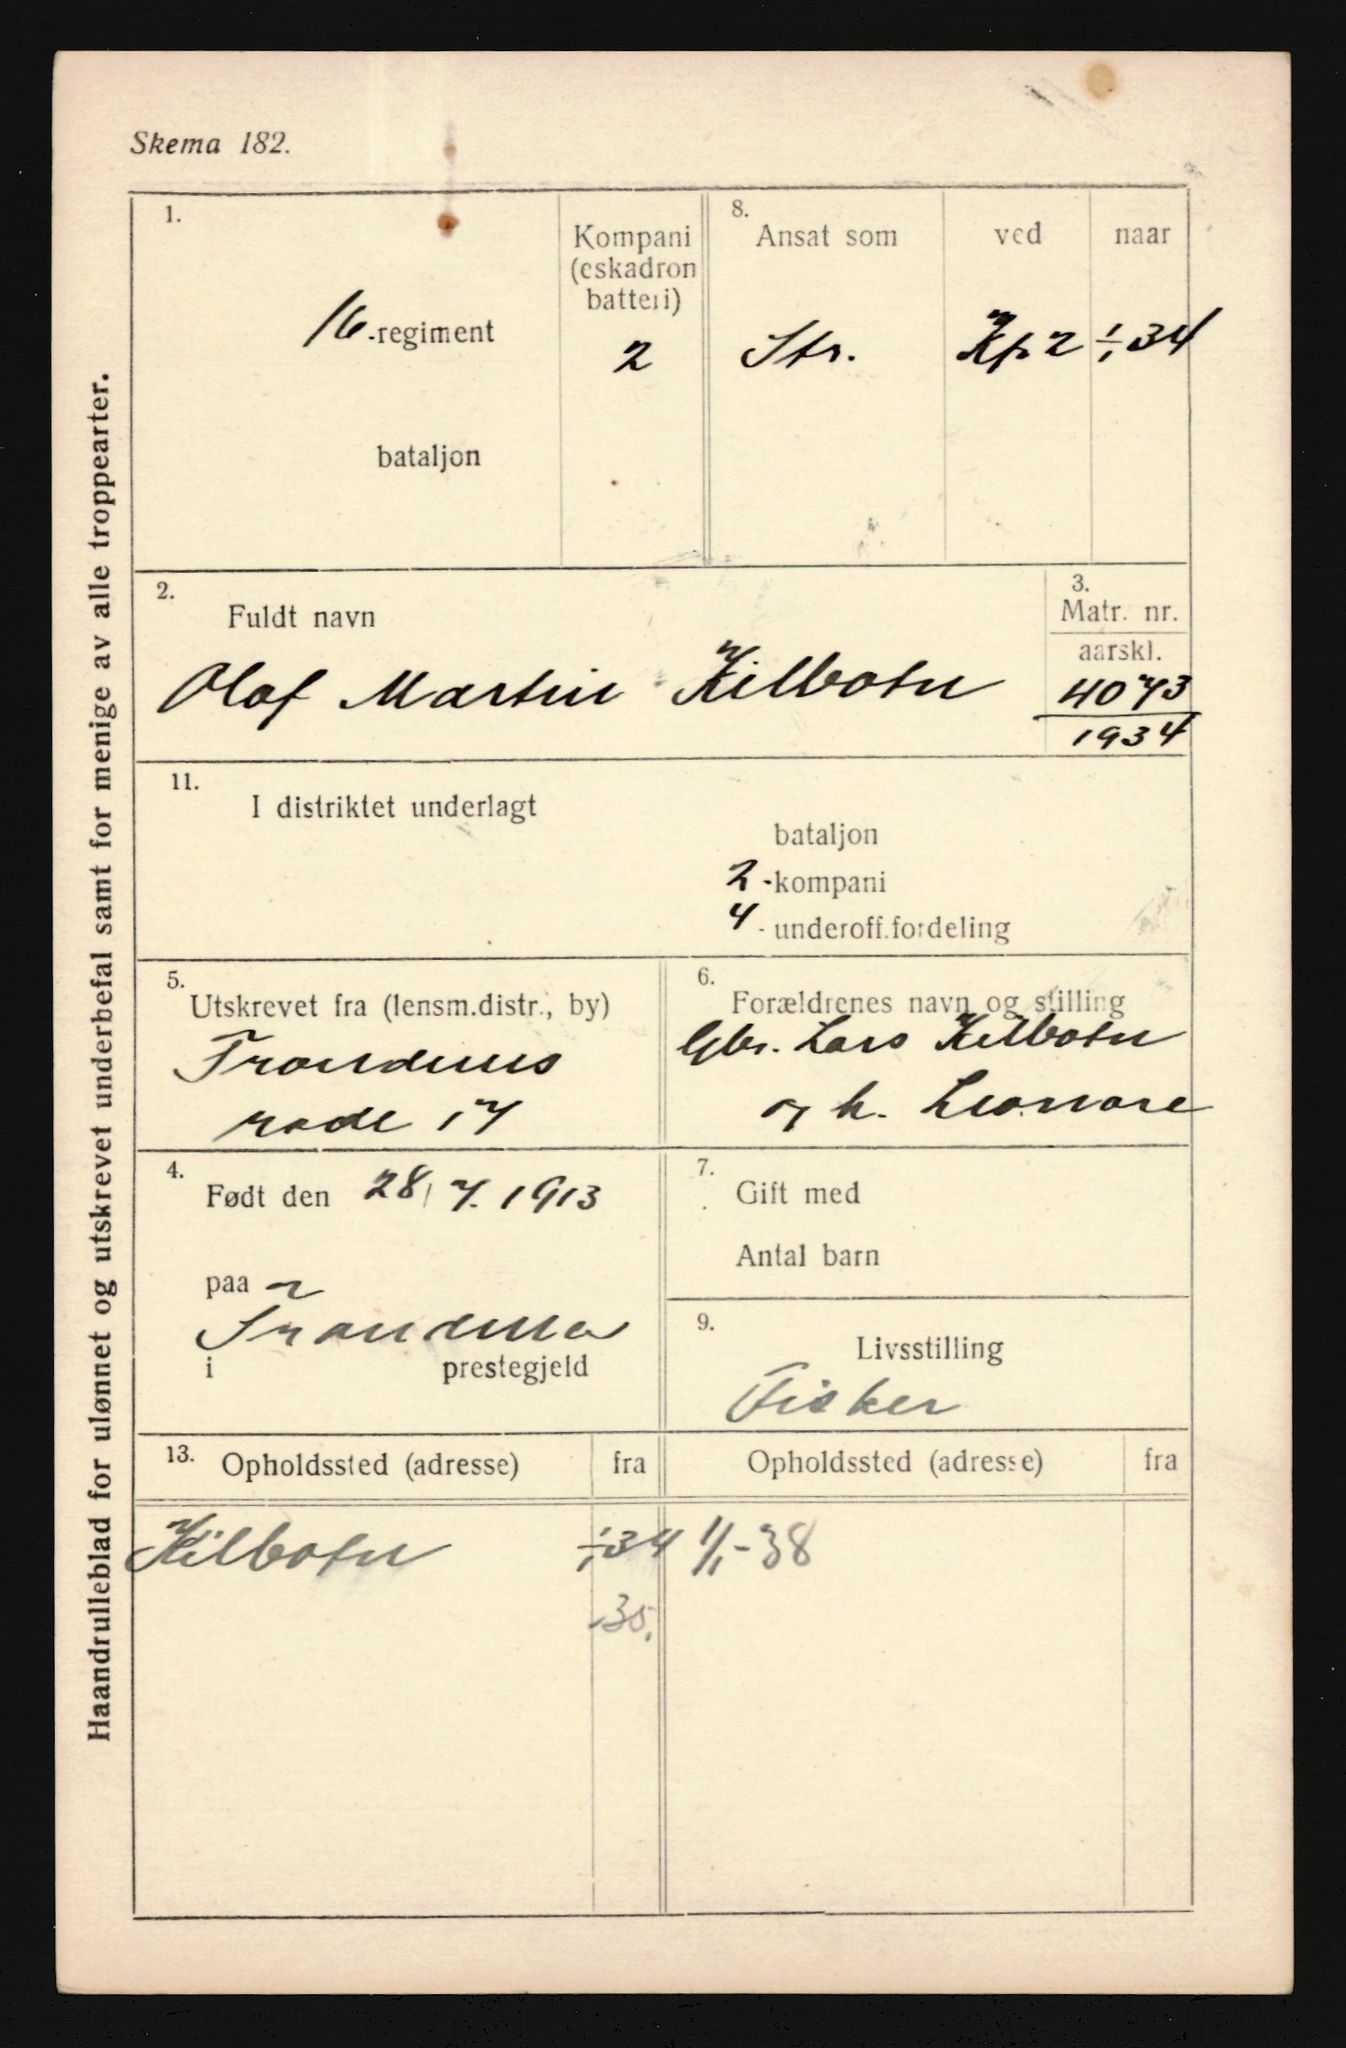 Skema 182.
Haandrulleblad for ulønnet og utskrevet underbefal samt for menige av alle troppearter.
1.
16.-regiment
bataljon
Kompani
(eskadron
batteri)
2
8.
Ansat som
ved
naar
Str.
Kp 2
1/1 34
2.
Fuldt navn
Olaf Martin Kilbotn
3.
Matr. nr.
aarskl.
4073
1934
11.
I distriktet underlagt
bataljon
2-kompani
4-underoff.fordeling
5.
Utskrevet fra (lensm.distr., by)
Trondenes
rode 17
6.
Forældrenes navn og stilling
Gbr. Lars Kilbotn
og h. Leonore
4.
Født den 28/7. 1913
paa
Trondenes
i prestegjeld
7.
Gift med
Antal barn
9.
Livsstilling
Fisker
13. Opholdssted (adresse)
fra
Opholdssted (adresse)
fra
Kilbotn 1/1 34 1/1-38
-35.